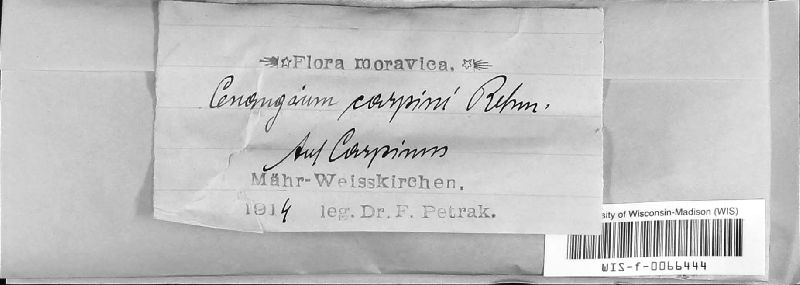 Flora moravica.
Cenangium carpini Rehm.
Auf Carpinus
Mähr-Weisskirchen.
1914 leg. Dr. F. Petrak.
sity of Wisconsin-Madison (WIS)
WIS-f-0066444